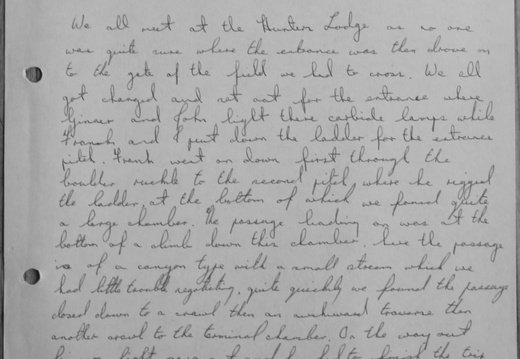 We all met at the Hunters Lodge as no one
was quite sure where the entrance was then drove on
to the gate of the field we had to cross. We all
got changed and set out for the entrance where
Ginser and John light there carbide lamps while
Franck and I put down the ladder for the entrance
pitch. Frank went on down first through the
boulder ruckle to the second pitch where he rigged
the ladder, at the bottom of which we found quite
a large chamber. The passage leading on was at the
bottom of a climb down this chamber. here the passage
is of a canyon type with a small stream which we
had little trouble negotiating, quite quickly we found the passage
closed down to a crawl then an awkward traverse then
another crawl to the terminal chamber. On the way out
light